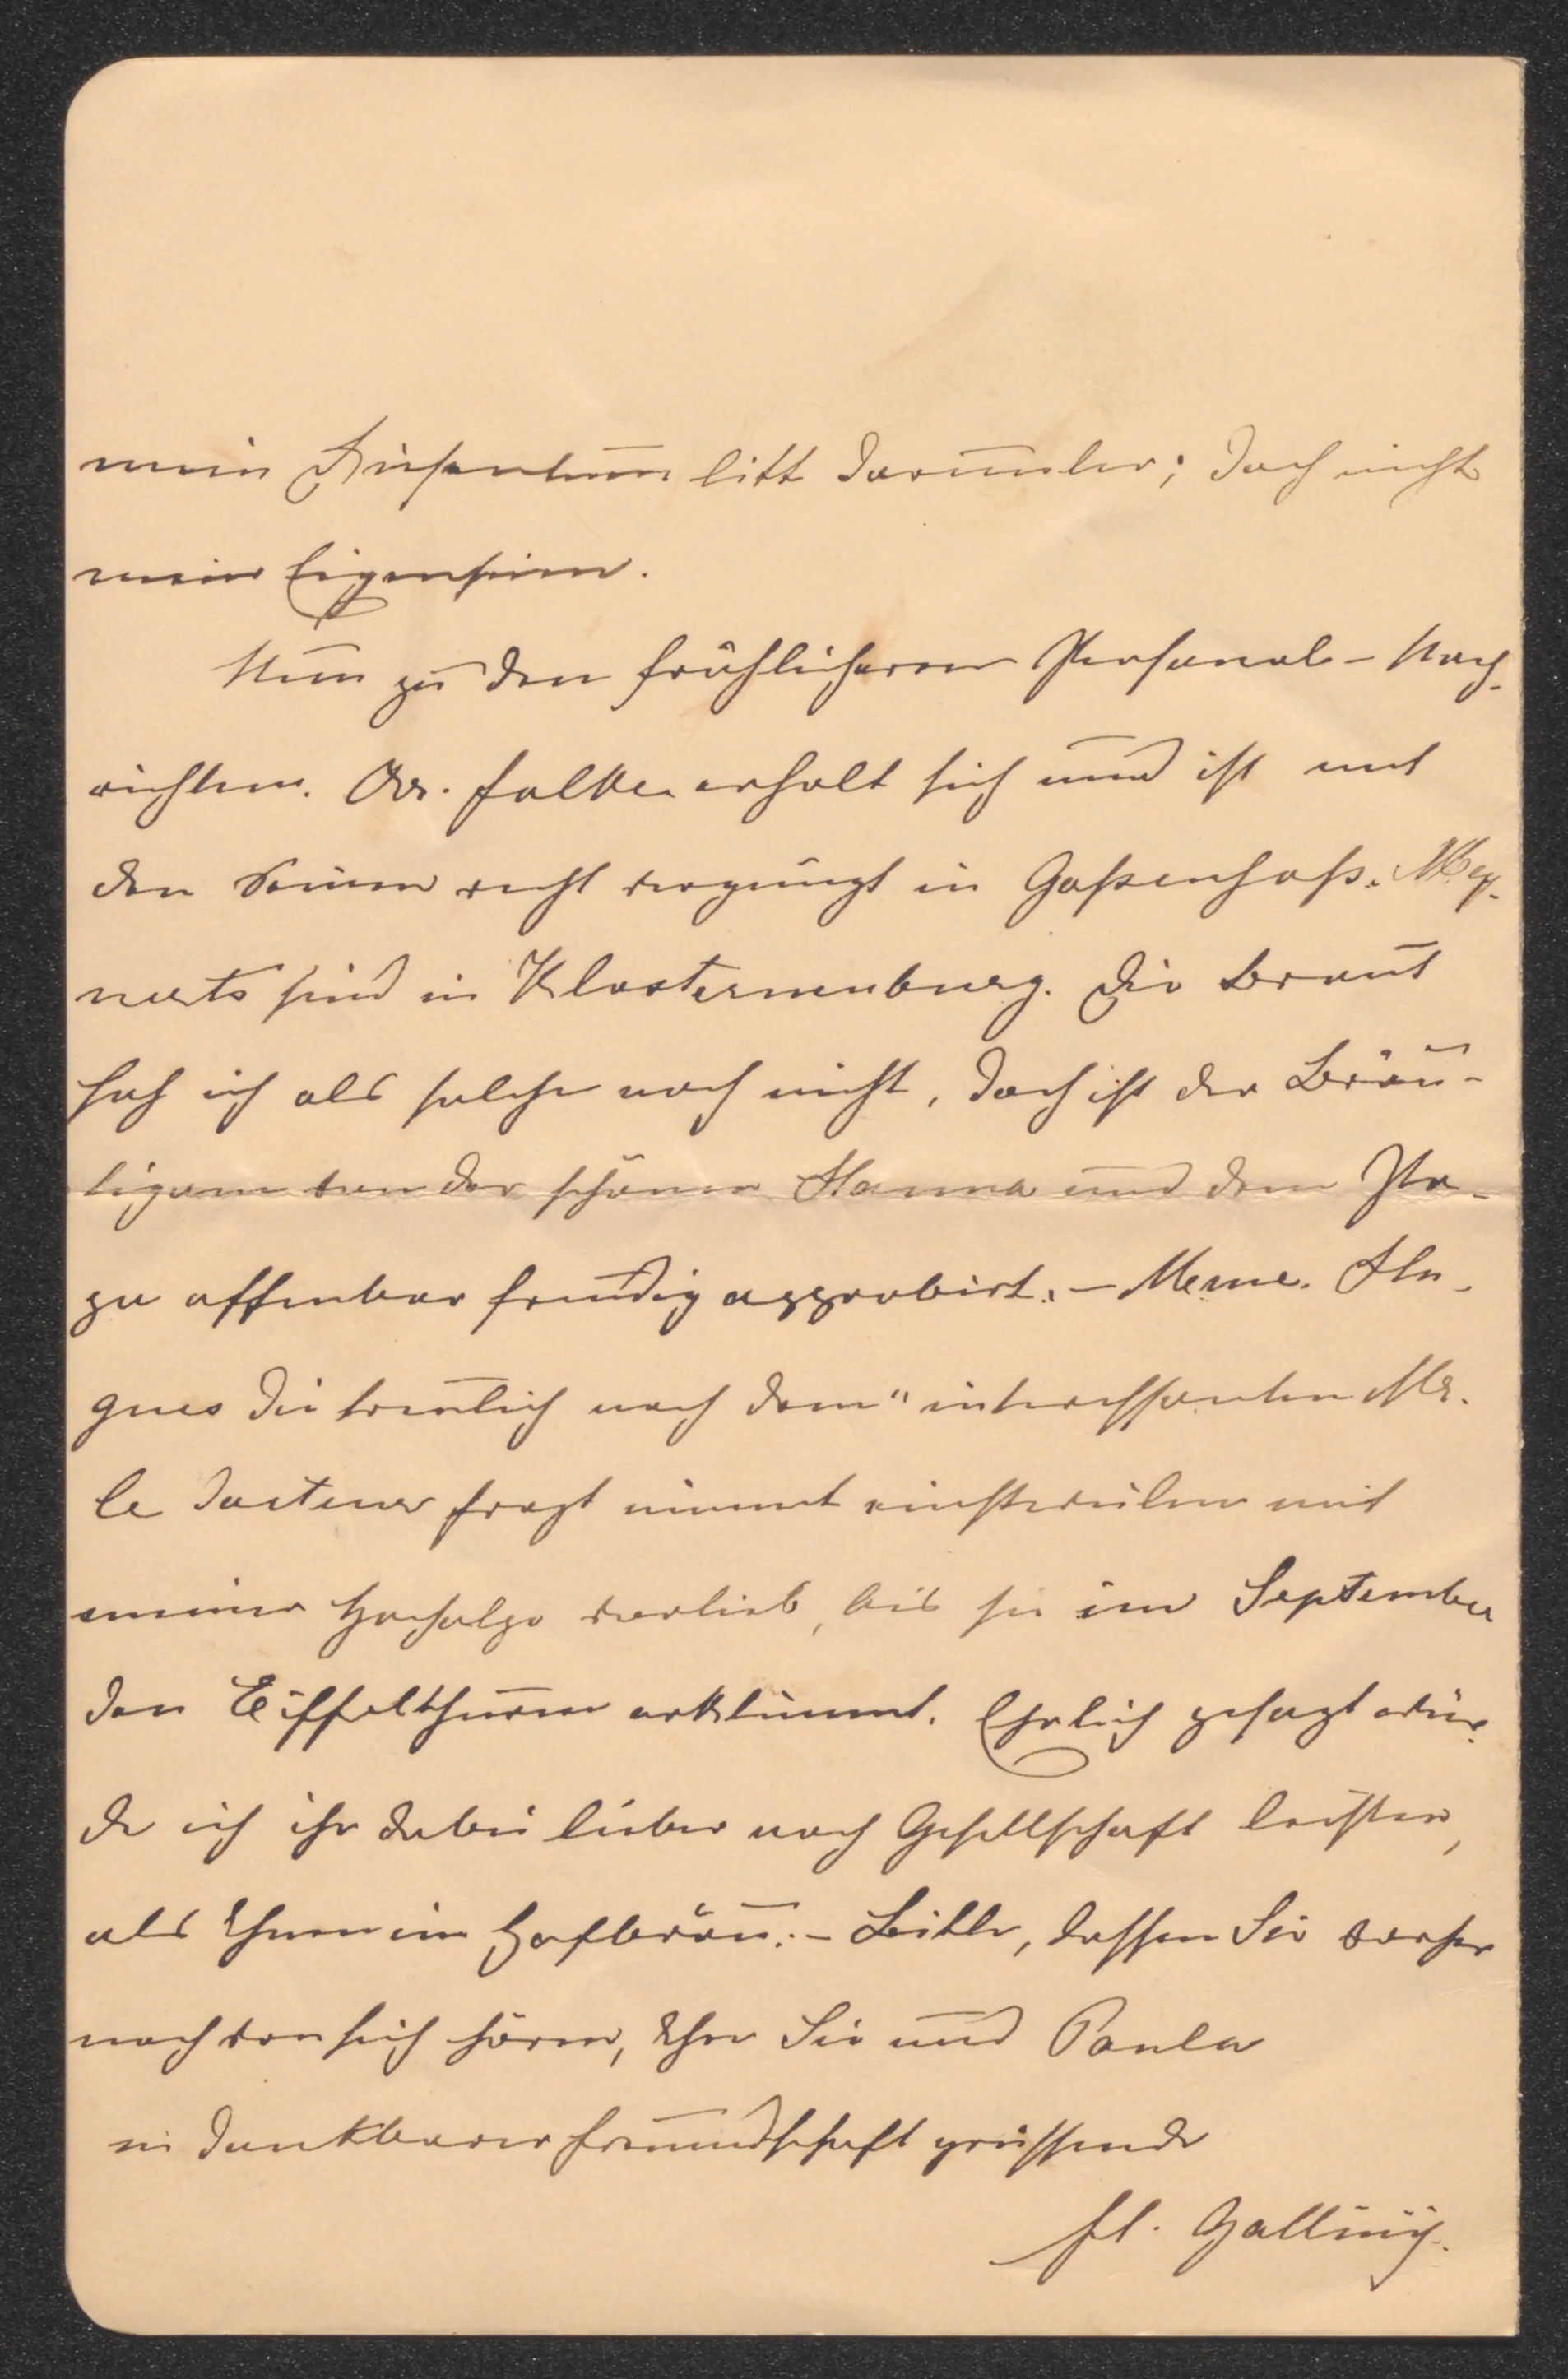 mein Dichterthum litt darunter; doch nicht
mein Eigensinn.
Nun zu den fröhlicheren Personal-Nach-
richten. Dr. Falke erholt sich und ist mit
den Seinen recht vergnügt in Goßensaß. Mey-
nerts sind in Klosterneuburg. Die Braut
sah ich als solche noch nicht, doch ist der Bräu-
tigam von der schönen Hanna und dem Pa-
zu offenbar freudig approbirt. – Meme. Hu-
gues die treulich nach dem "interessanten Mr.
le docteur fragt nimmt einstweilen mit
meiner Hofsolge vorlieb, bis sie im September
den Eiffelthurm erklimmt. Ehrlich gesagt wür-
de ich ihr dabei lieber noch Gesellschaft leisten,
als Ihnen im Hofbräu. – Bitte, lassen Sie vorher
noch von sich hören, Ihre Sie und Paula
in dankbarer Freundschaft grüssende
Fl. Galliny.